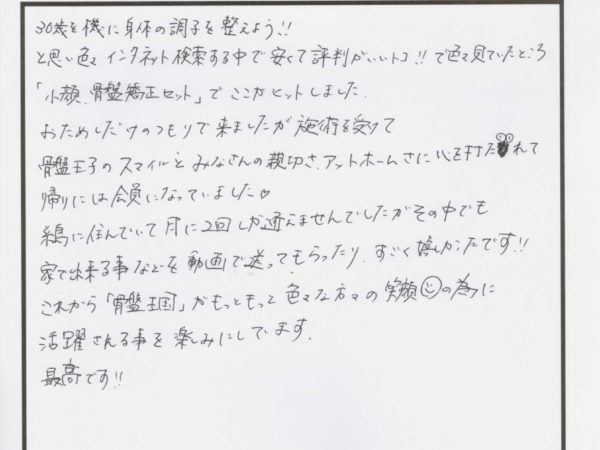 30歳を機に身体の調子を整えよう!!
と思い色々インタネット検索する中で安くて評判がいいトコ!!で色々見ていたところ
「小顔、骨盤矯正セット」でここがヒットしました.
おためしだけのつもりで来ましたが施術を受けて
骨盤王子のスマイルとみなさんの親切さ、アットホームさに心を打たれて
帰りには会員になっていました♡
綿島に住んでいて月に2回しか通えませんでしたがその中でも
家で出来る事などを動画で送ってもらったり、すごく嬉しかったです!!
これから「骨盤王国」がもっともっと色々な方々の笑顔☺の為に
活躍される事を楽しみにしてます.
最高です!!